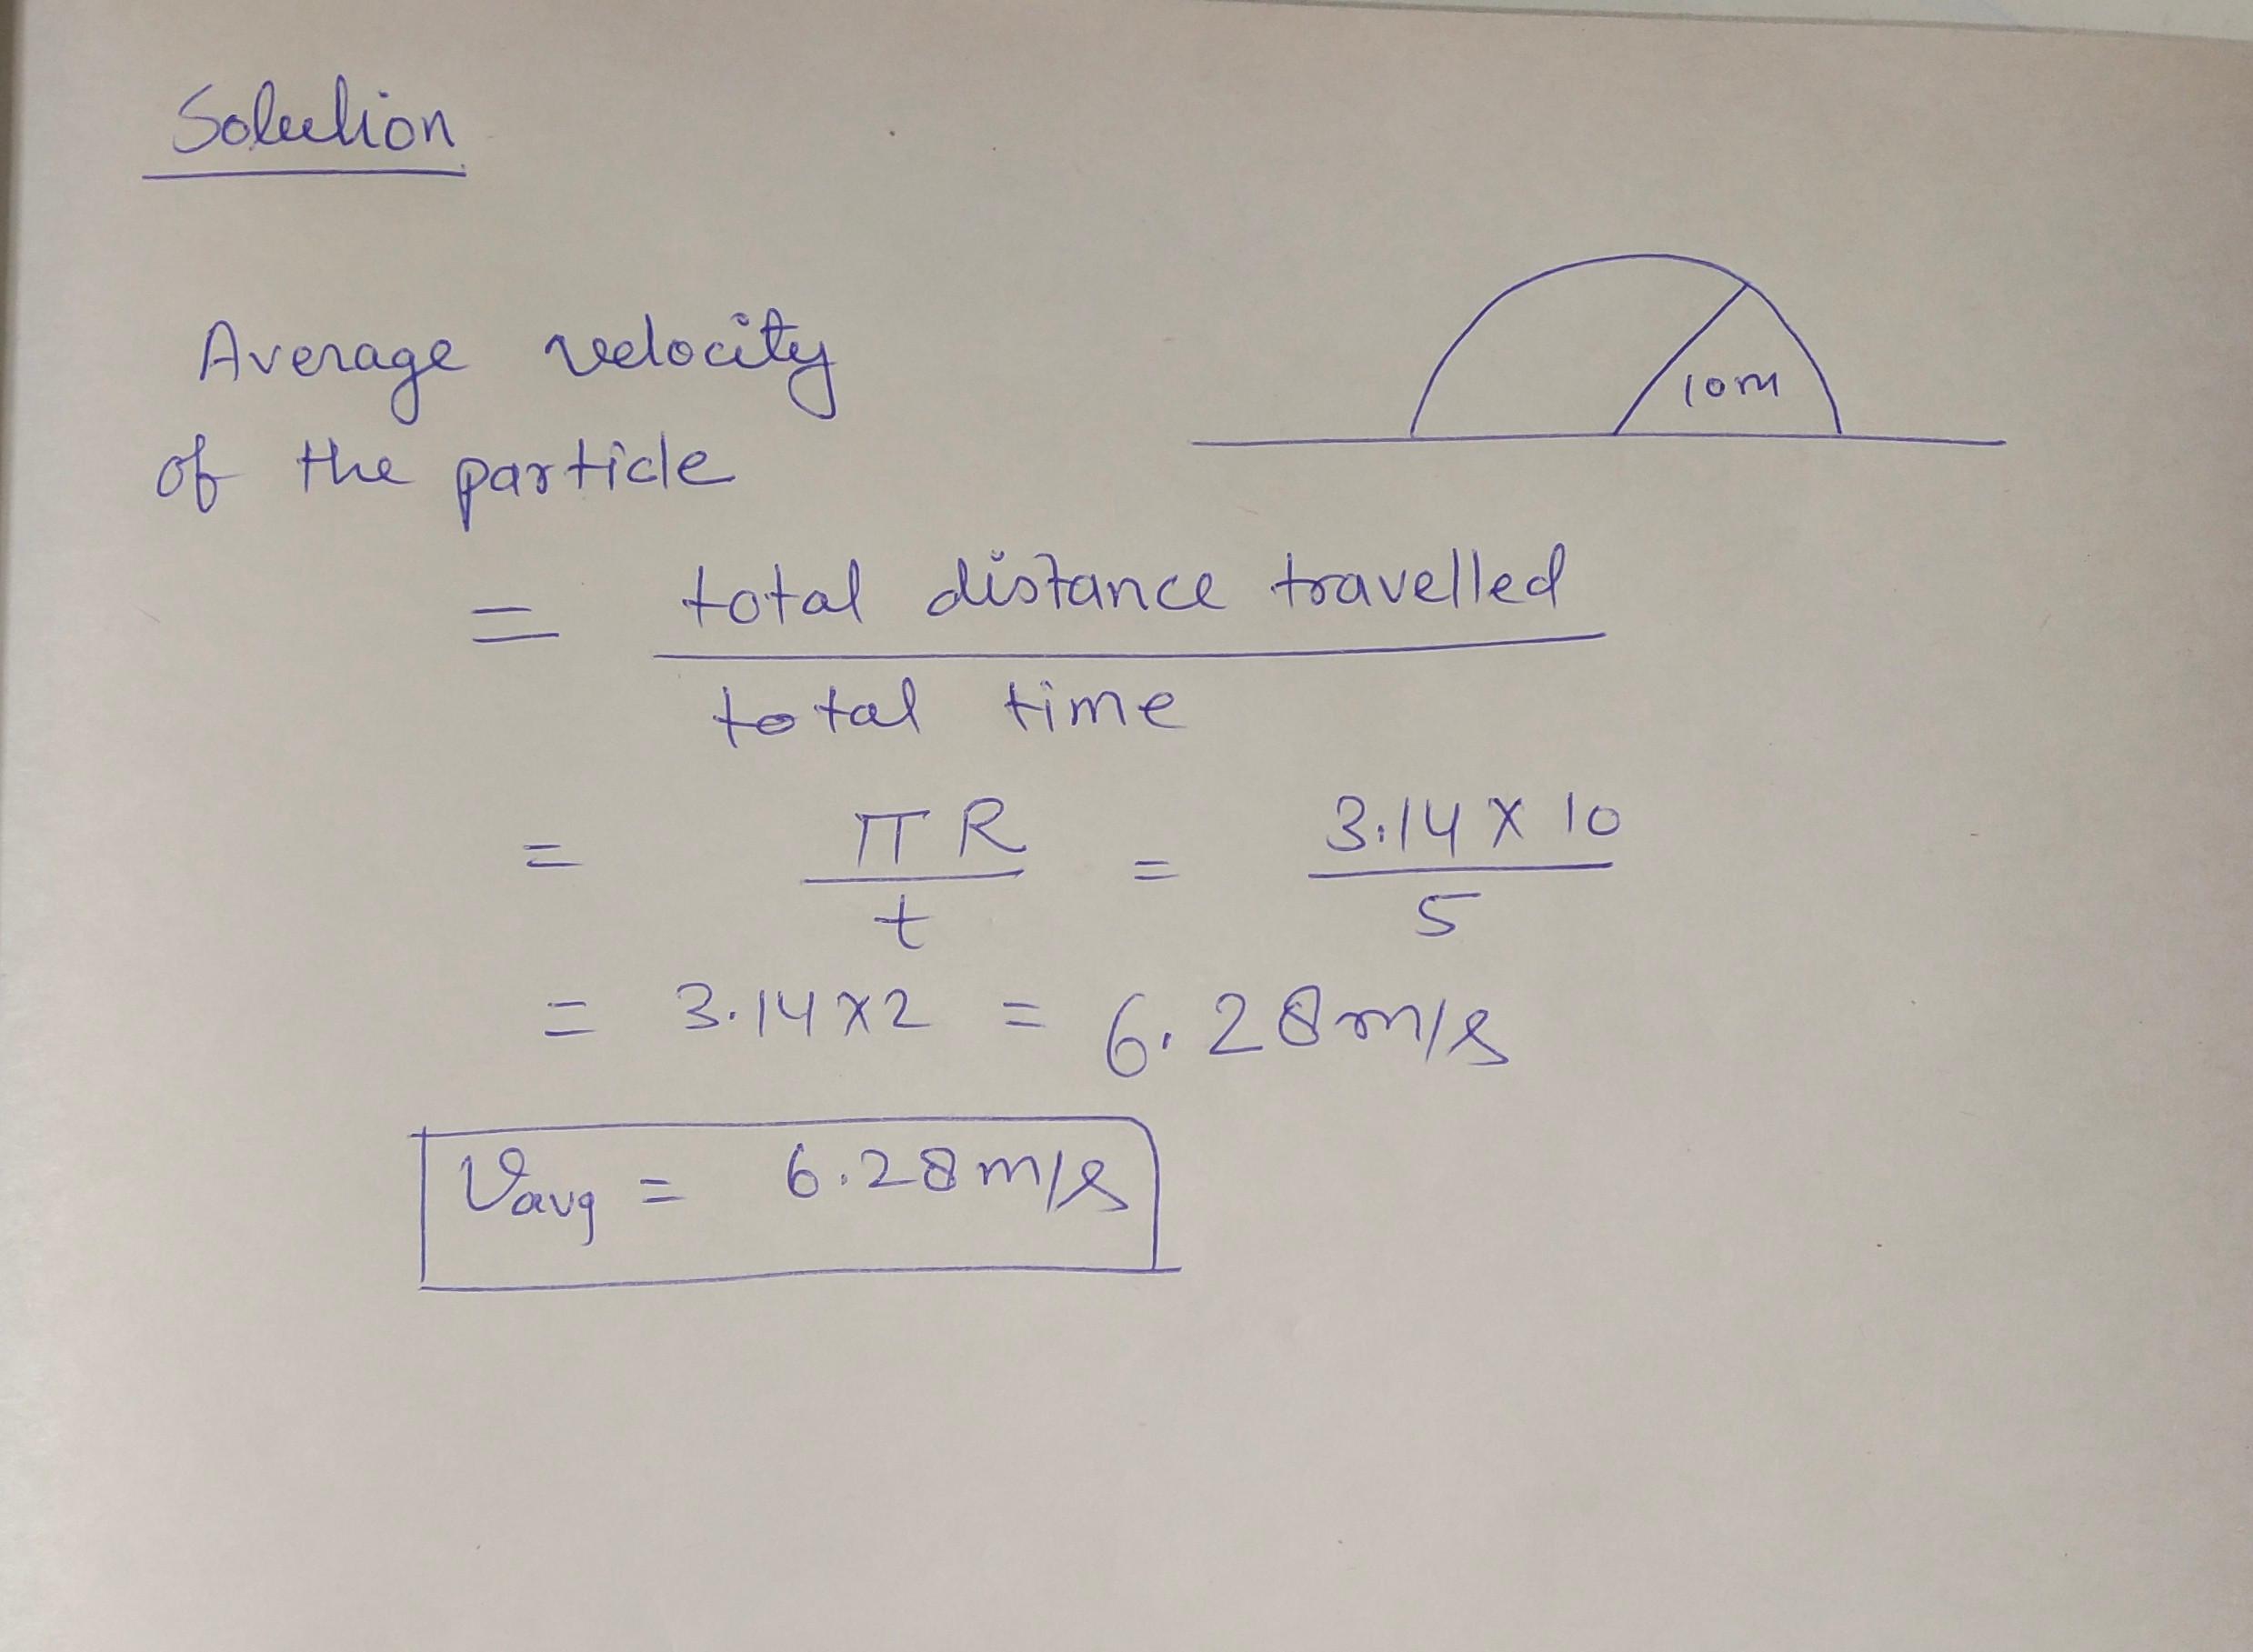 Solution
Average velocity
of the particle
10m
= total distance travelled
total time
= πR / t = 3.14 X 10 / 5
= 3.14 x 2 = 6.28 m/s
Vavg = 6.28 m/s